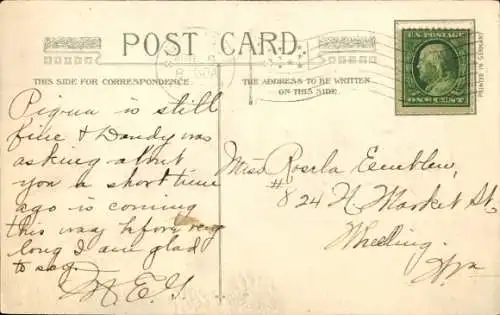 POST CARD.
THIS SIDE FOR CORRESPONDENCE.
THE ADDRESS TO BE WRITTEN
ON THIS SIDE.
U.S. POSTAGE
ONE CENT
PRINTED IN GERMANY
Piqua is still
fine & Dandy was
asking about
you a short time
ago is coming
this way before very
long I am glad
to say.
Miss Rosela
# 824 N. Market St,
Wheeling.
W va